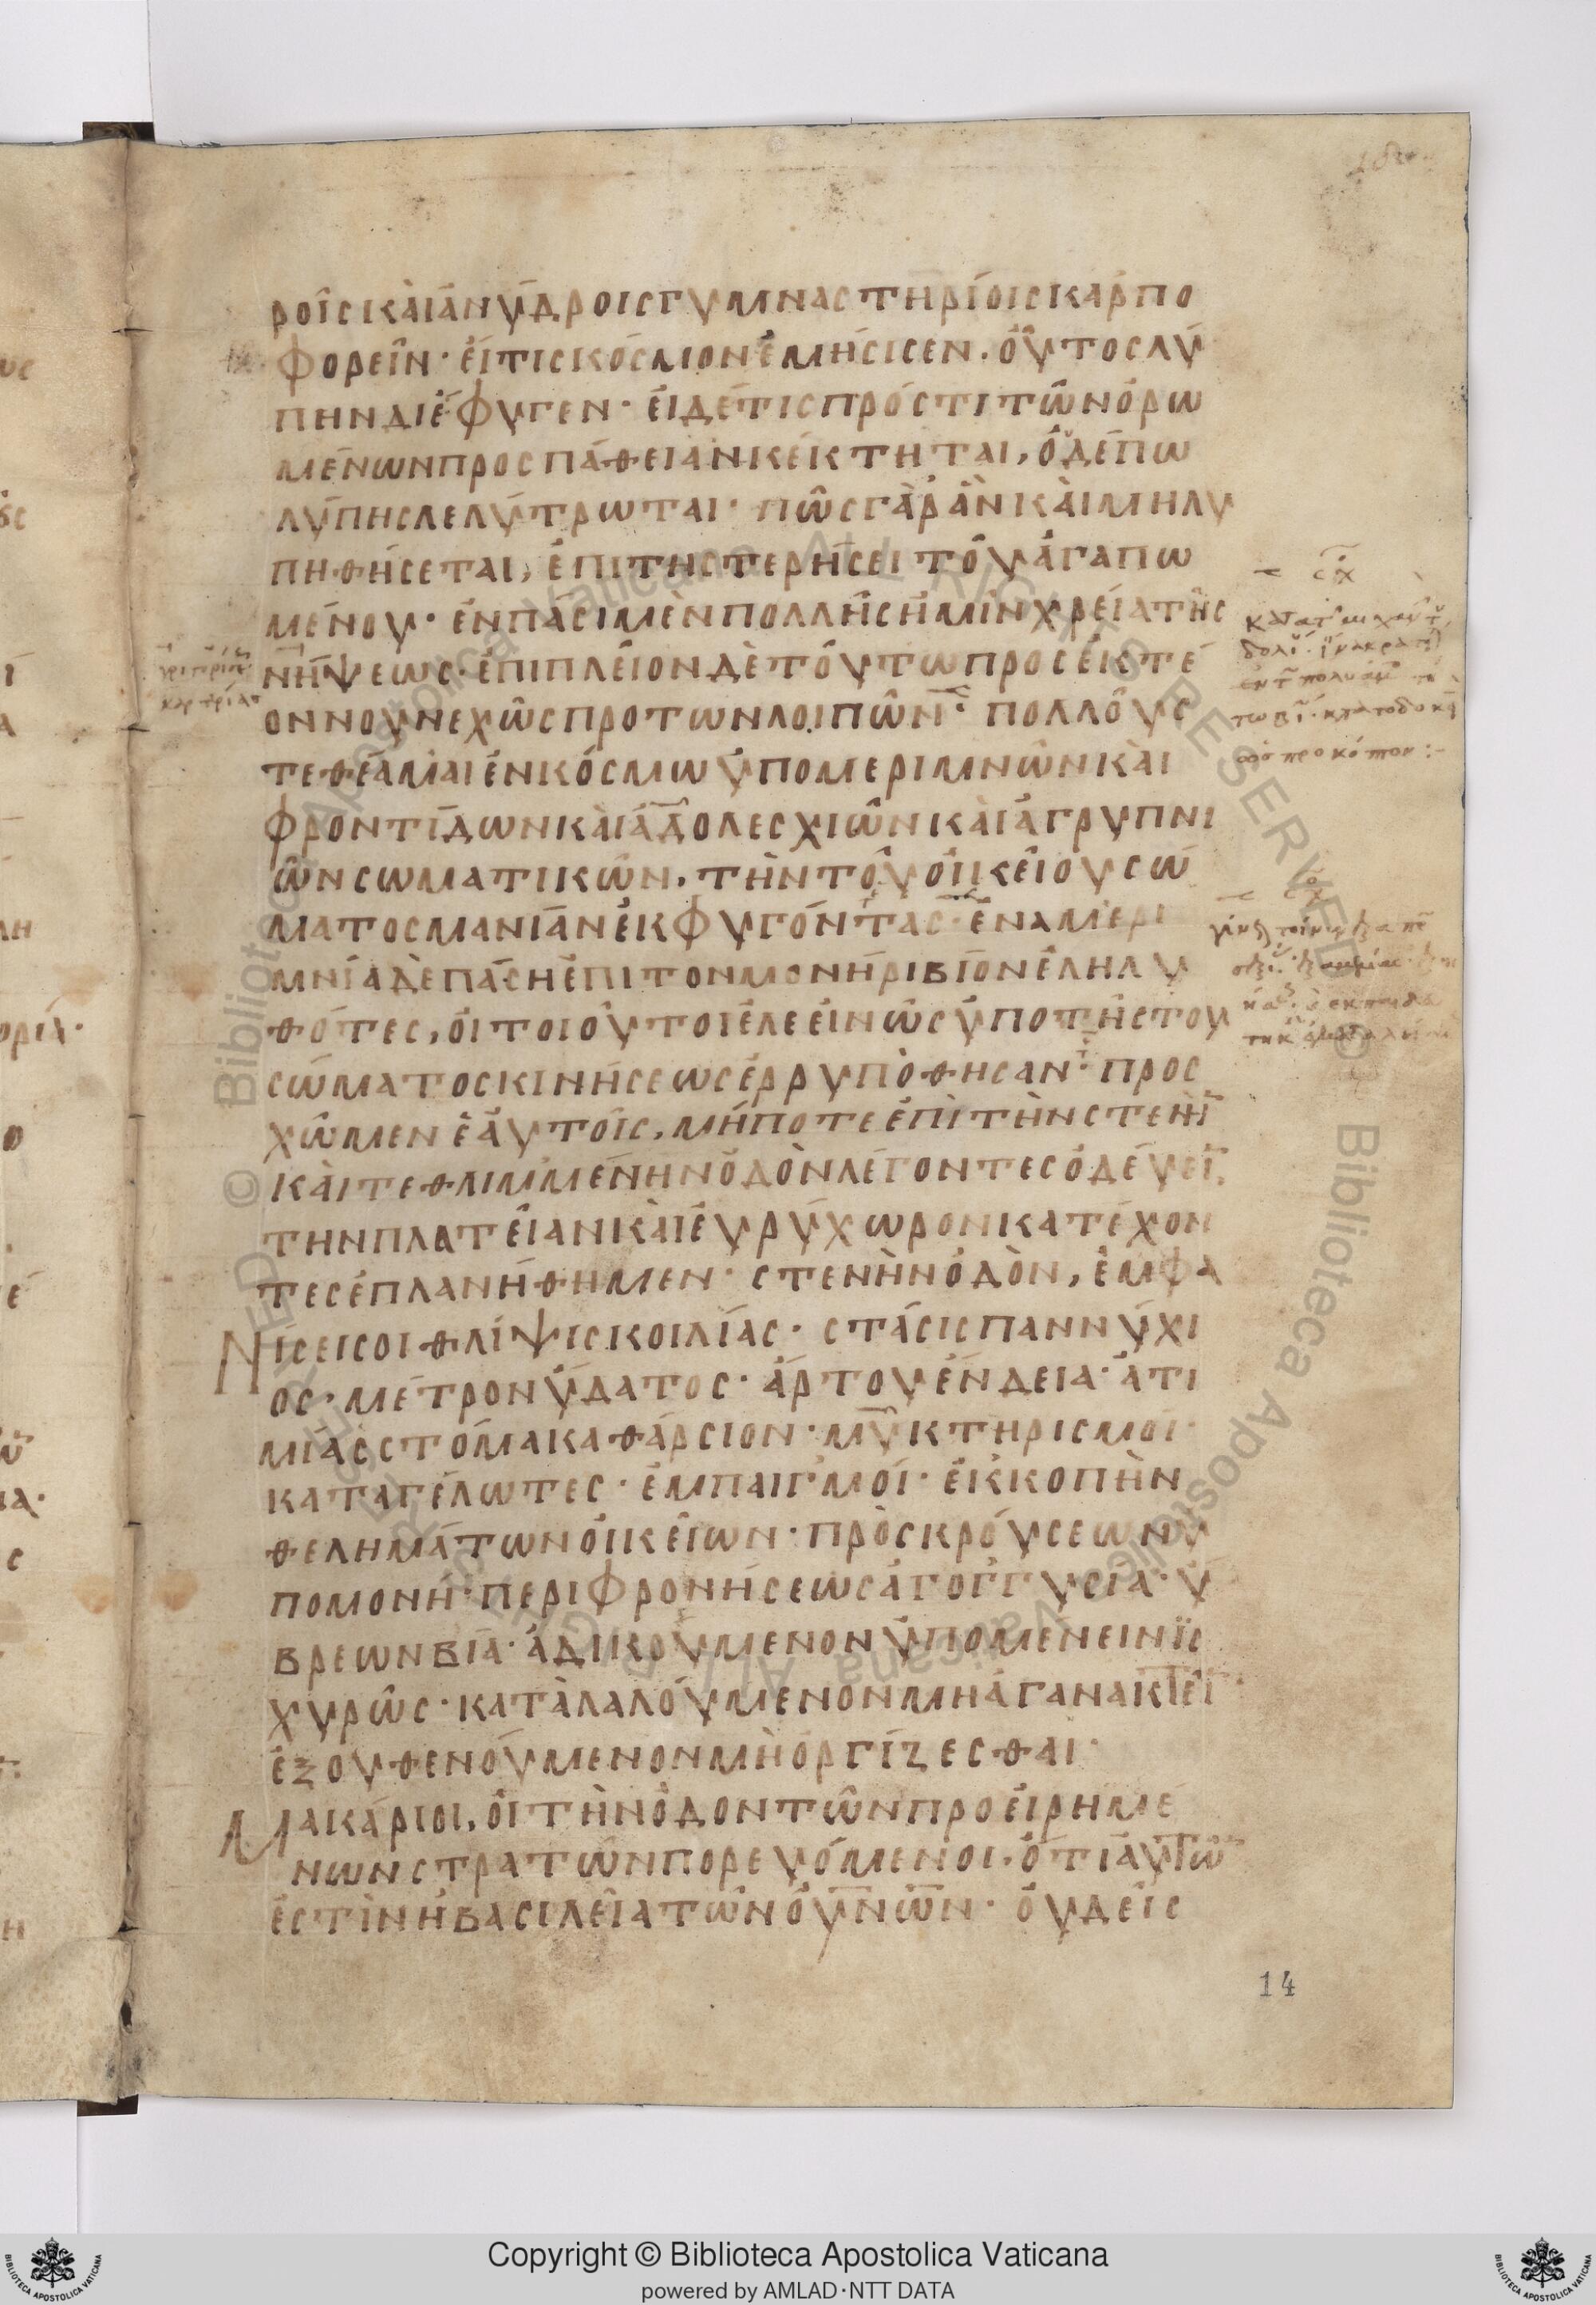 ροῖς καὶ ἀνύδροις γυμναστηρίοις καρπο
φορεῖν· εἴ τις κόσμον ἐμήσισεν. οὗτος λύ
πην διέφυγεν· εἰ δέ τις πρός τι τῶν ὁρω
μένων προσπάθειαν κέκτηται, οὐδέπω
λύπης λελύτρωται· πῶς γὰρ ἂν καὶ μὴ λυ
πηθήσεται, ἐπὶ τῇ στερήσει τοῦ ἀγαπω
μένου· ἐν πᾶσι μὲν πολλῆς ἡμῖν χρεία τῆς
νήψεως· ἐπὶ πλεῖον δὲ τούτω προσεκτέ
ον νουνεχῶς πρὸ τῶν λοιπῶν· πολλοὺς
τεθέαμαι ἐν κόσμω ὑπὸ μεριμνῶν καὶ
φροντίδων καὶ ἀδολεσχιῶν καὶ ἀγρυπνι
ῶν σωματικῶν, τὴν τοῦ οἰκείου σώ
ματος μανίαν ἐκφυγόντας· ἐν ἀμερι
μνία δὲ πάση ἐπὶ τὸν μονήρι βίον ἐληλυ
θότες, οἱ τοιοῦτοι ἐλεεινῶς ὑπὸ τῆς τοῦ
σώματος κινήσεως ἐρρυπόθησαν· προσ
χῶμεν ἑαυτοῖς, μήποτε ἐπὶ τὴν στενὴν
καὶ τεθλιμμένην ὁδὸν λέγοντες ὁδεύειν.
τὴν πλατεῖαν καὶ εὐρύχωρον κατέχον
τες ἐπλανήθημεν· στενὴν ὁδὸν, ἐμφα
νίσει σοι θλίψις κοιλίας· στάσις παννύχι
ος· μέτρον ὕδατος· ἄρτου ἔνδεια· ἀτι
μίας πόμα καθάρσιον· μυκτηρισμοί·
καταγέλωτες· ἐμπαιγμοί· ἐκκοπὴν
θελημάτων οἰκείων· προσκρούσεων ὑ
πομονή· περιφρονήσεως ἀγογγυσία· ὕ
βρεων βία· ἀδικούμενον ὑπομένειν ἰσ
χυρῶς· καταλαλούμενον μὴ ἀγανακτεῖν·
ἐξουθενούμενον μὴ ὀργίζεσθαι·
Μακάριοι, οἱ τὴν ὁδὸν τῶν προειρημέ
νων στρατῶν πορευόμενοι. ὅτι αὐτῶν
ἐστὶν ἡ βασιλεία τῶν οὐνῶν· οὐδεὶς
14
Copyright © Biblioteca Apostolica Vaticana
powered by AMLAD·NTT DATA